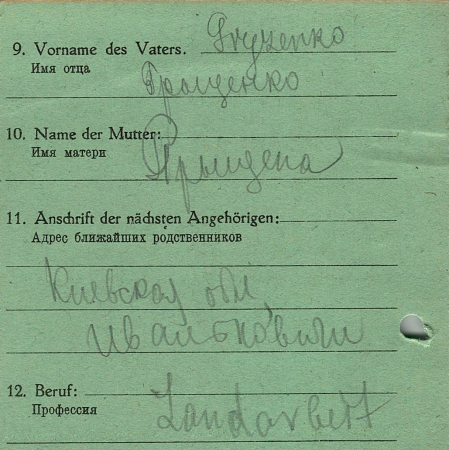 9. Vorname des Vaters.
Имя отца
Грищенко
10. Name der Mutter:
Имя матери
11. Anschrift der nächsten Angehörigen:
Адрес ближайших родственников
Киевская обл
12. Beruf: Landarbeit
Профессия